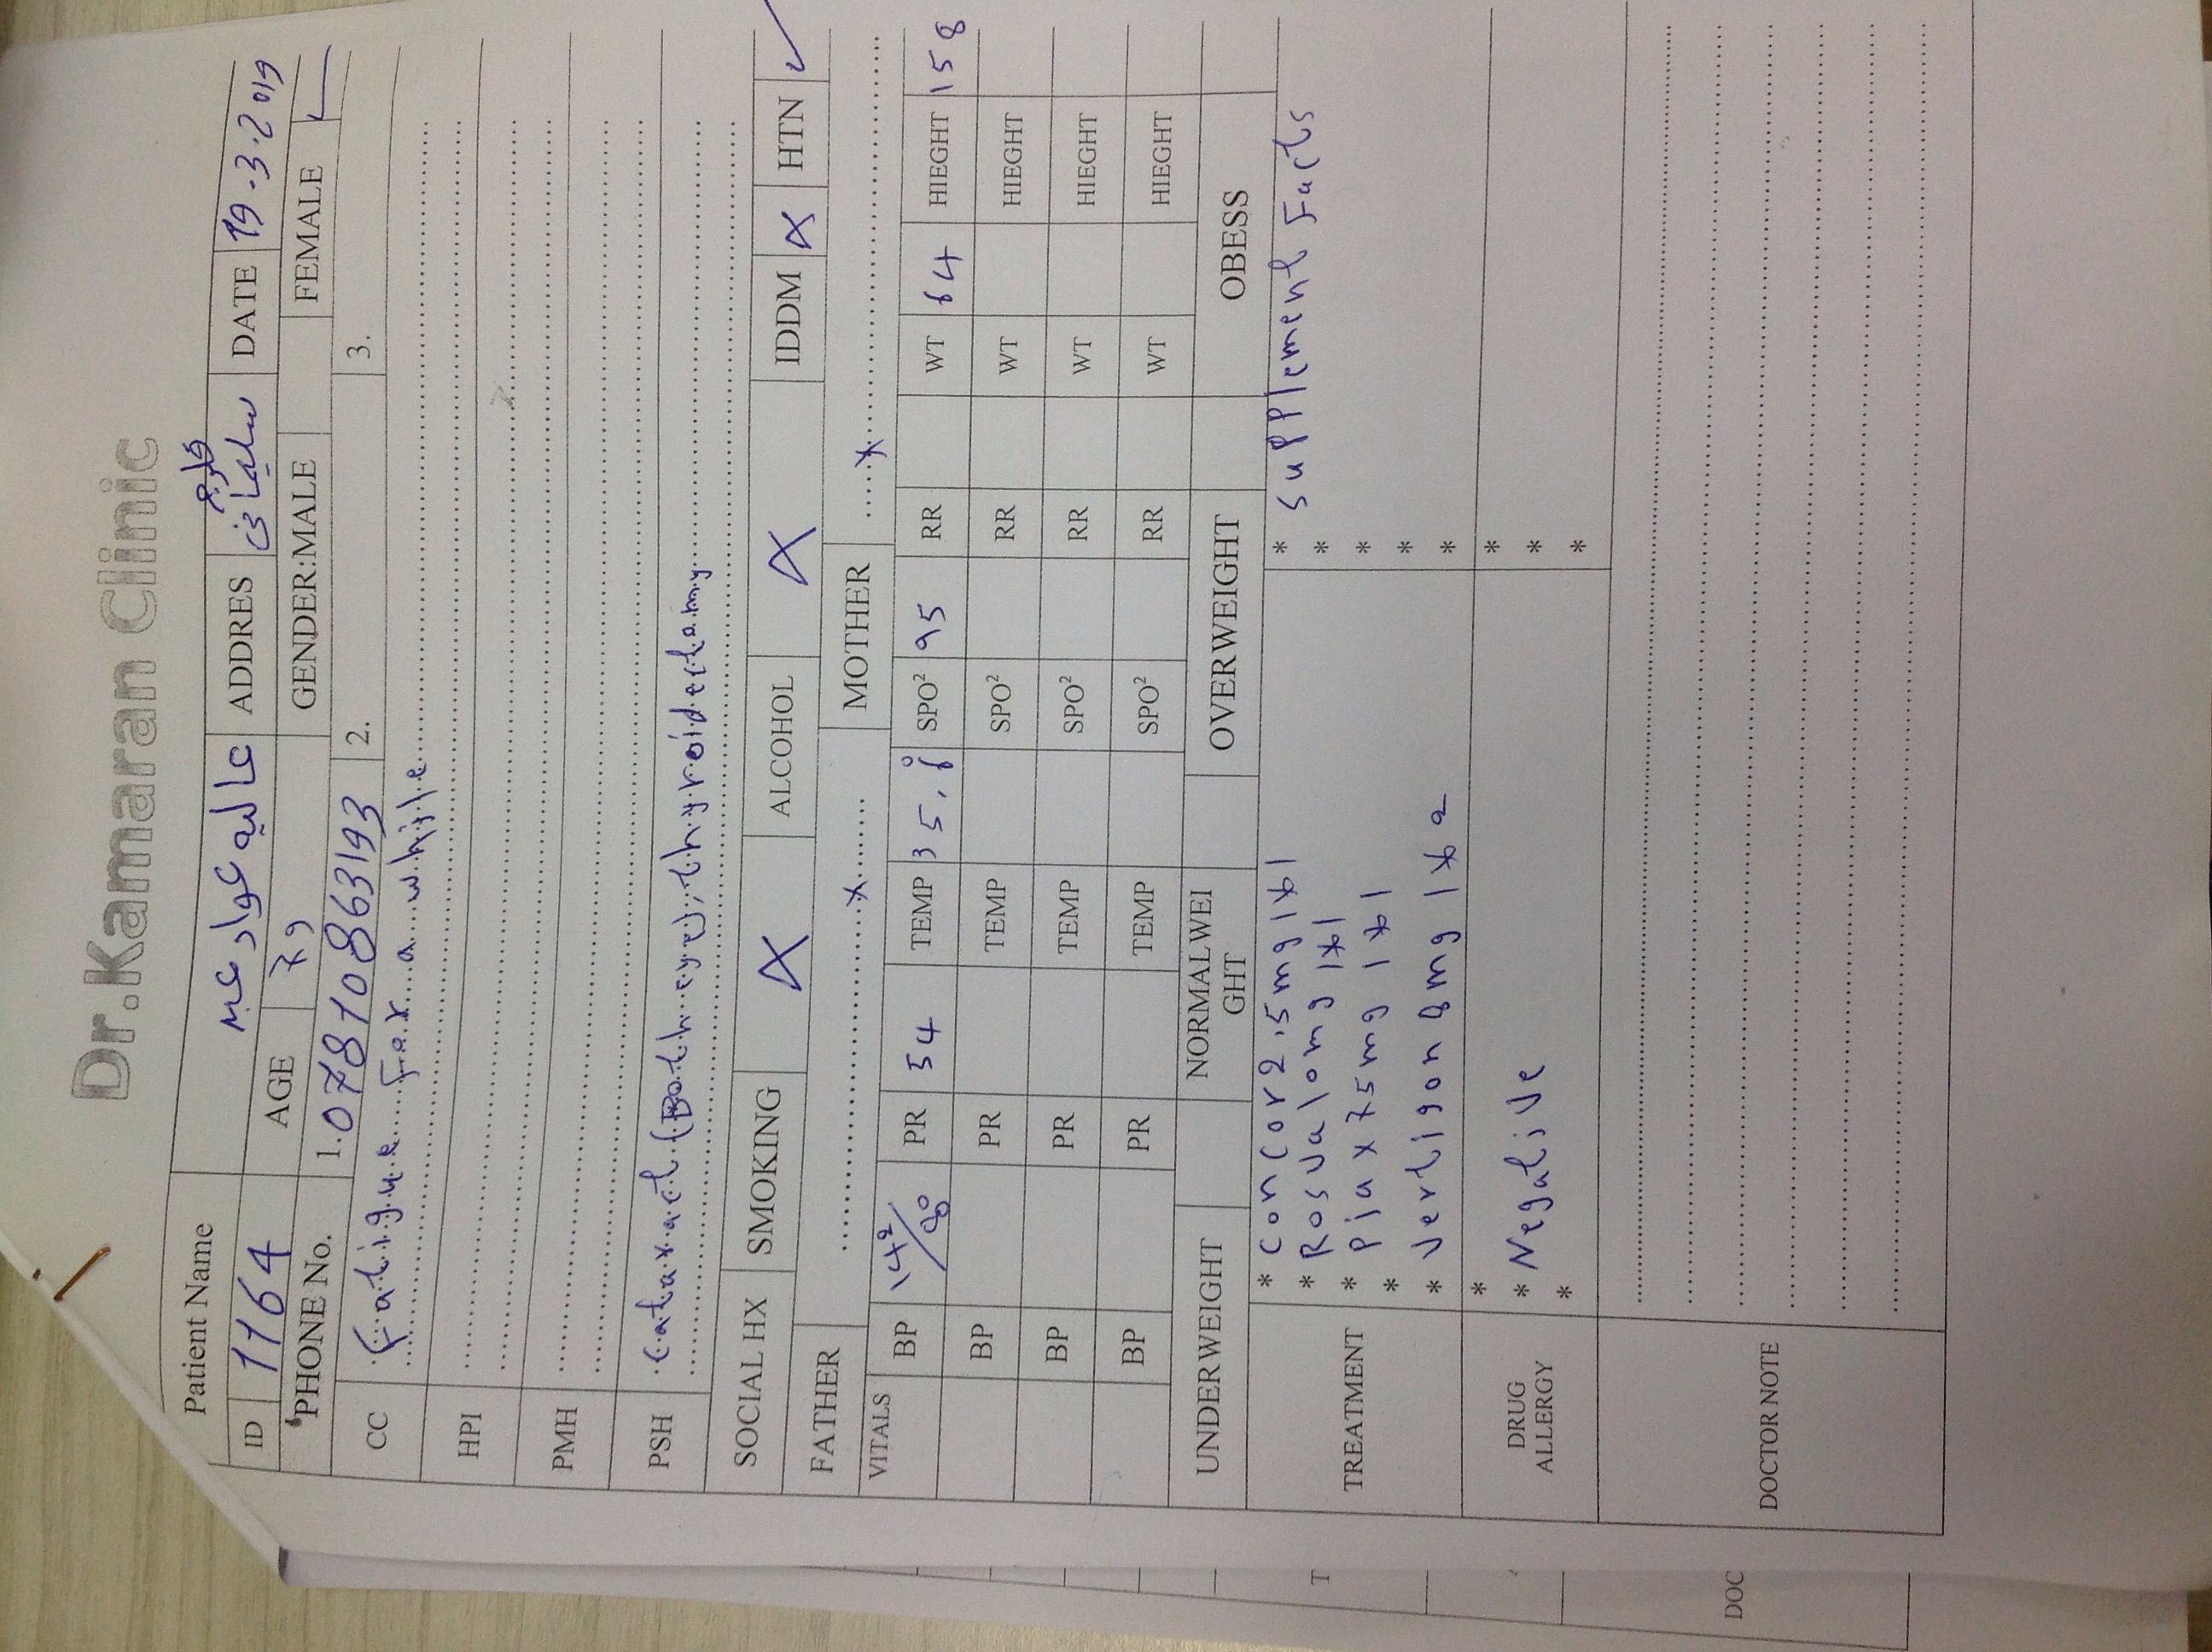 Dr.Kamaran Clinic
Patient Name عاليه عواد
ID 1164 AGE 79 ADDRES سليمانى DATE 19.3.2019
GENDER:MALE FEMALE ✓
PHONE No. 1.07810863193 2. 3.
CC Fatigue For a while
HPI
PMH
PSH Cataract (Both eye), thyroidectomy
SOCIAL HX SMOKING X ALCOHOL X IDDM X HTN ✓
FATHER x MOTHER x
VITALS BP PR 54 TEMP SPO² 95 RR WT 64 HIEGHT 158
BP PR TEMP SPO² RR WT HIEGHT
BP PR TEMP SPO² RR WT HIEGHT
BP PR TEMP SPO² RR WT HIEGHT
UNDERWEIGHT NORMALWEI
GHT OVERWEIGHT OBESS
TREATMENT
* Concor 2.5mg 1x1
* Rosva 10mg 1x1
* Piax 75mg 1x1
*
* Vertigon 8mg 1x2
* Supplement Facts
*
*
*
*
DRUG
ALLERGY
*
* Negative
*
*
*
*
DOCTOR NOTE
T
DOC